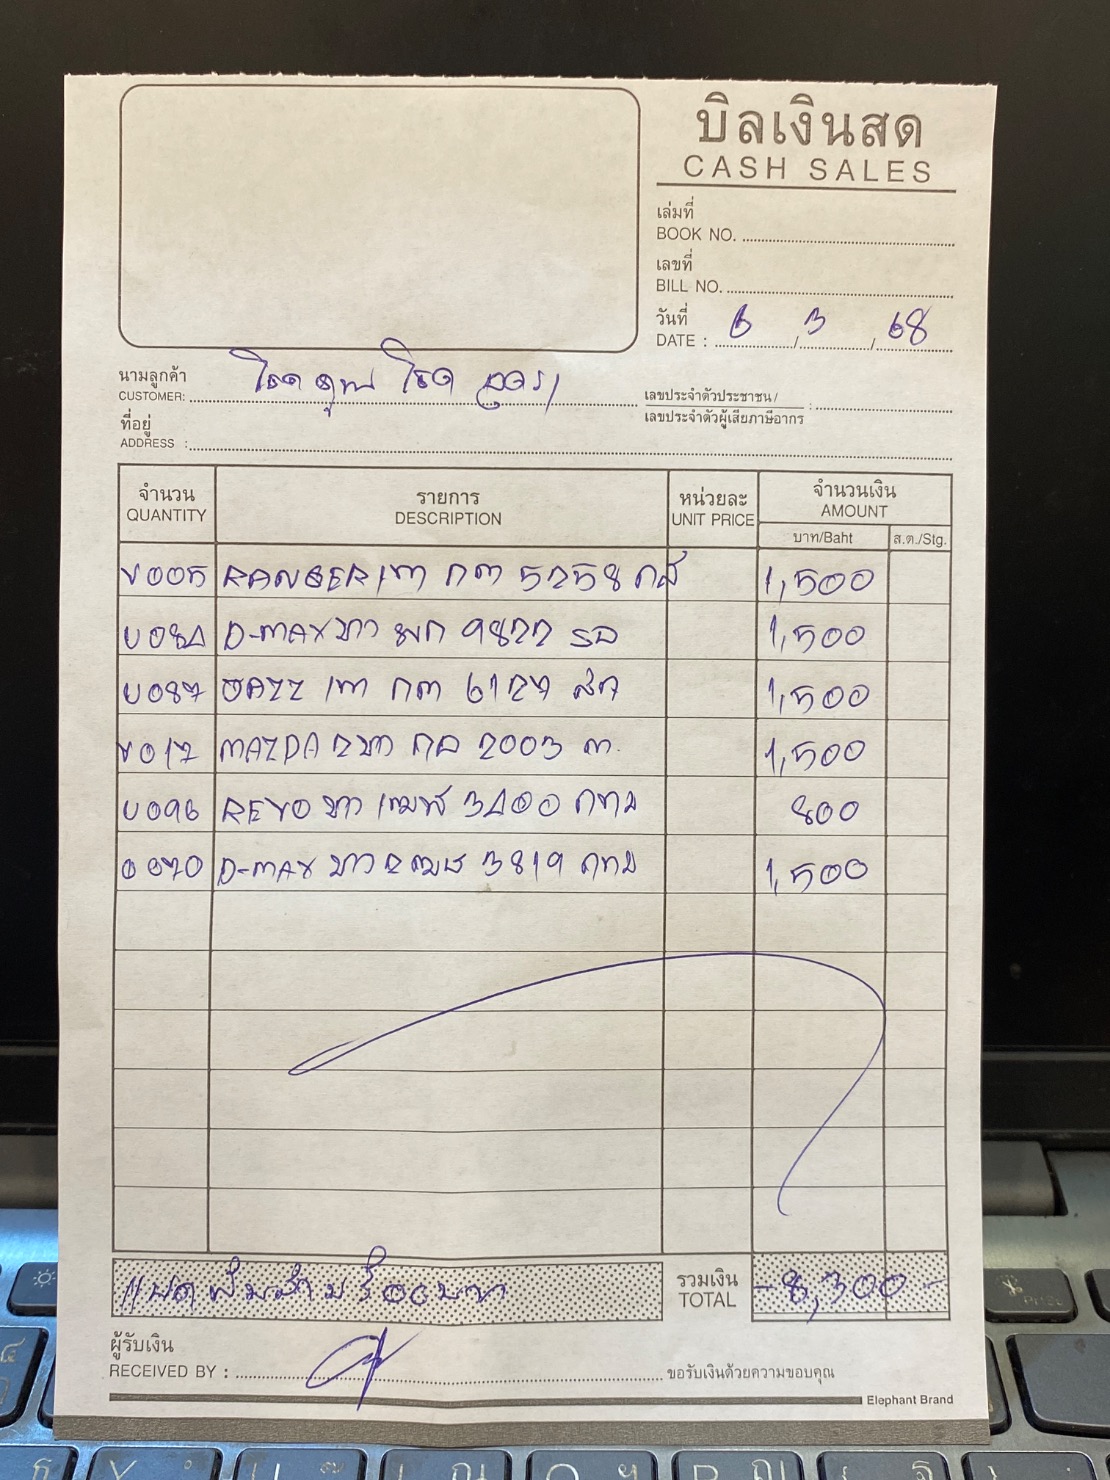 บิลเงินสด
CASH SALES
เล่มที่
BOOK NO.
เลขที่
BILL NO.
วันที่
DATE : 6 / 3 / 68
นามลูกค้า
CUSTOMER: โชค โชค
เลขประจำตัวประชาชน /
เลขประจำตัวผู้เสียภาษีอากร :
ที่อยู่
ADDRESS :
จำนวน รายการ หน่วยละ จำนวนเงิน
QUANTITY DESCRIPTION UNIT PRICE AMOUNT
บาท/Baht ส.ต./Stg.
V005 RANGER เทา กท 5258 1,500
U084 D-MAX ขาว 9822 1,500
U087 JAZZ เทา กท 6127 1,500
V017 MAZDA 2 ขาว 2003 1,500
U096 REVO ขาว 3400 กทม 800
0870 D-MAX ขาว 3819 กทม 1,500
แปดพันสามร้อยบาท รวมเงิน -8,300-
TOTAL
ผู้รับเงิน
RECEIVED BY : ขอรับเงินด้วยความขอบคุณ
Elephant Brand